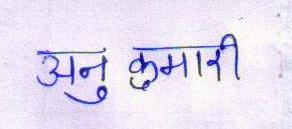 अनु कुमारी